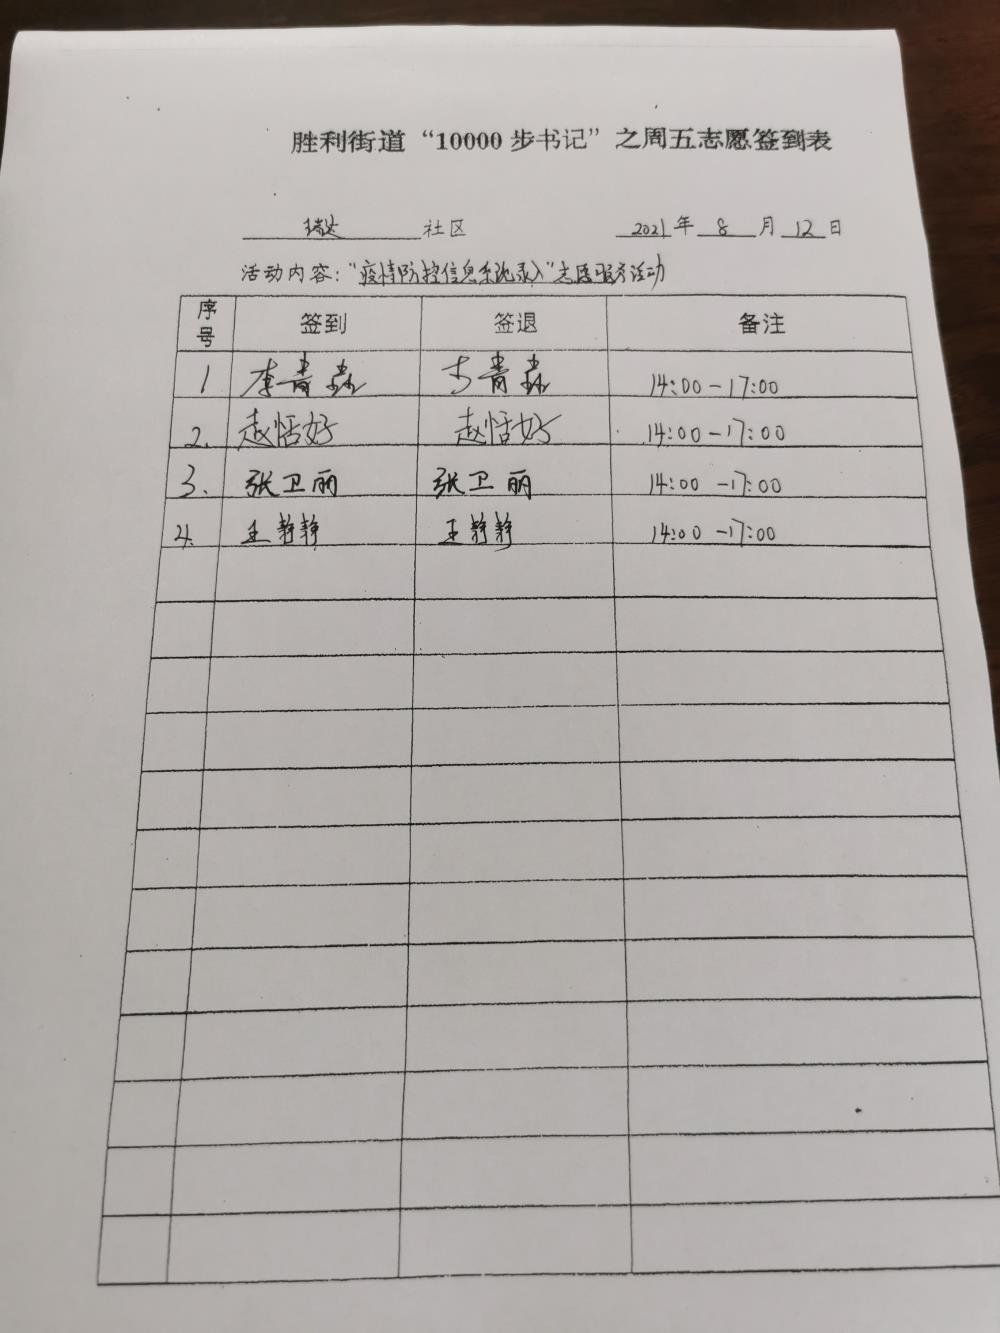 胜利街道“10000步书记”之周五志愿签到表
瑞达 社区 2021年 8 月 12 日
活动内容:“疫情防控信息系统录入”志愿服务活动
序号 签到 签退 备注
1 李青森 李青森 14:00-17:00
2. 赵恬好 赵恬好 14:00-17:00
3. 张卫丽 张卫丽 14:00-17:00
4. 王静静 王静静 14:00-17:00